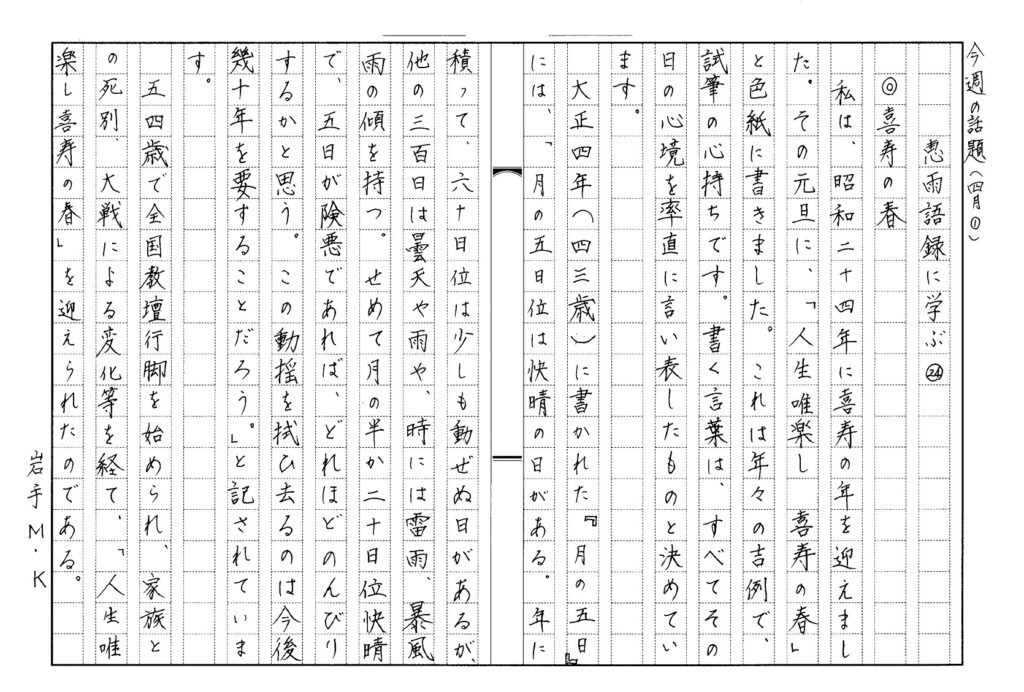 今週の話題（四月①）
恵雨語録に学ぶ㉔
◎喜寿の春
私は、昭和二十四年に喜寿の年を迎えまし
た。その元旦に、「人生唯楽し　喜寿の春」
と色紙に書きました。これは年々の吉例で、
試筆の心持ちです。書く言葉は、すべてその
日の心境を率直に言い表したものと決めてい
ます。
大正四年（四三歳）に書かれた『月の五日』
には、「月の五日位は快晴の日がある。年に
積って、六十日位は少しも動ぜぬ日があるが、
他の三百日は曇天や雨や、時には雷雨、暴風
雨の傾を持つ。せめて月の半か二十日位快晴
で、五日が険悪であれば、どれほどのんびり
するかと思う。この動揺を拭ひ去るのは今後
幾十年を要することだろう。」と記されていま
す。
五四歳で全国教壇行脚を始められ、家族と
の死別、大戦による変化等を経て、「人生唯
楽し喜寿の春」を迎えられたのである。
岩手M・K